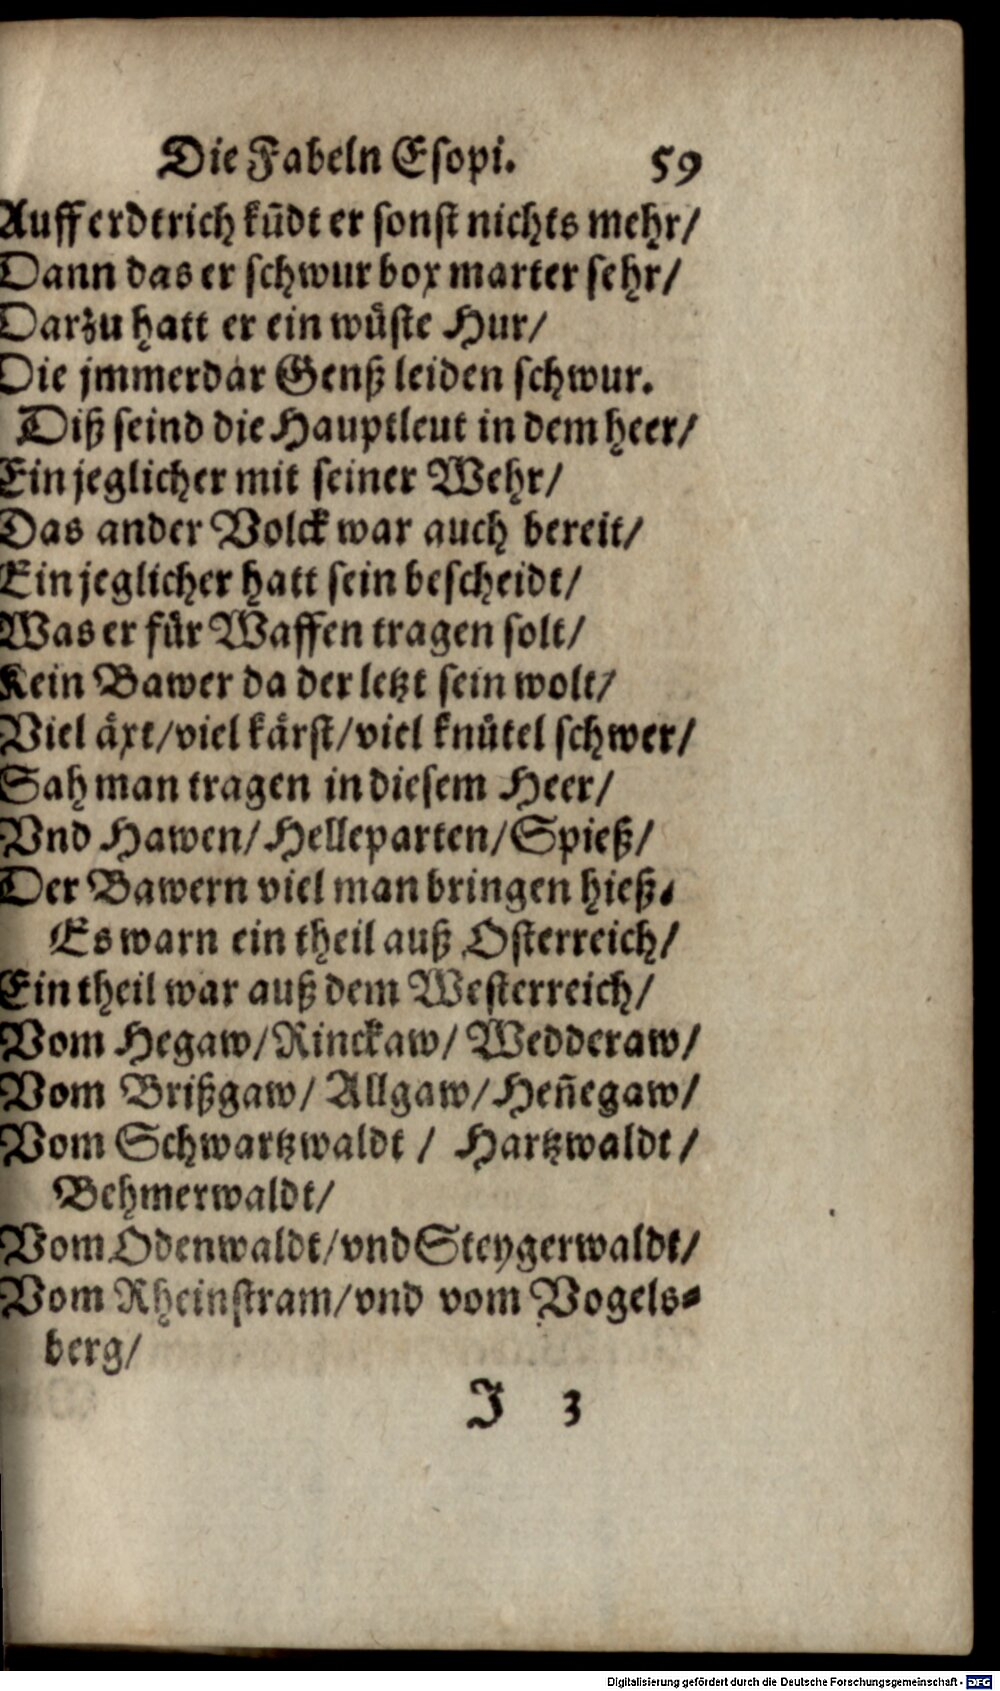 Die Fabeln Esopi. 59
Auff erdtrich kūdt er sonst nichts mehr/
Dann das er schwur box marter sehr/
Darzu hatt er ein wuͤste Hur/
Die jmmerdar Genß leiden schwur.
Diß seind die Hauptleut in dem heer/
Ein jeglicher mit seiner Wehr/
Das ander Volck war auch bereit/
Ein jeglicher hatt sein bescheidt/
Was er fuͤr Waffen tragen solt/
Kein Bawer da der letzt sein wolt/
Viel aͤxt/viel kaͤrst/viel knuͤtel schwer/
Sah man tragen in diesem Heer/
Vnd Hawen/Helleparten/Spieß/
Der Bawern viel man bringen hieß.
Es warn ein theil auß Osterreich/
Ein theil war auß dem Westerreich/
Vom Hegaw/Rinckaw/Wedderaw/
Vom Brißgaw/Allgaw/Hen̄egaw/
Vom Schwartzwaldt / Hartzwaldt/
Behmerwaldt/
Vom Odenwaldt/vnd Steygerwaldt/
Vom Rheinstram/vnd vom Vogels⸗
berg/
J 3
Digitalisierung gefördert durch die Deutsche Forschungsgemeinschaft - DFG